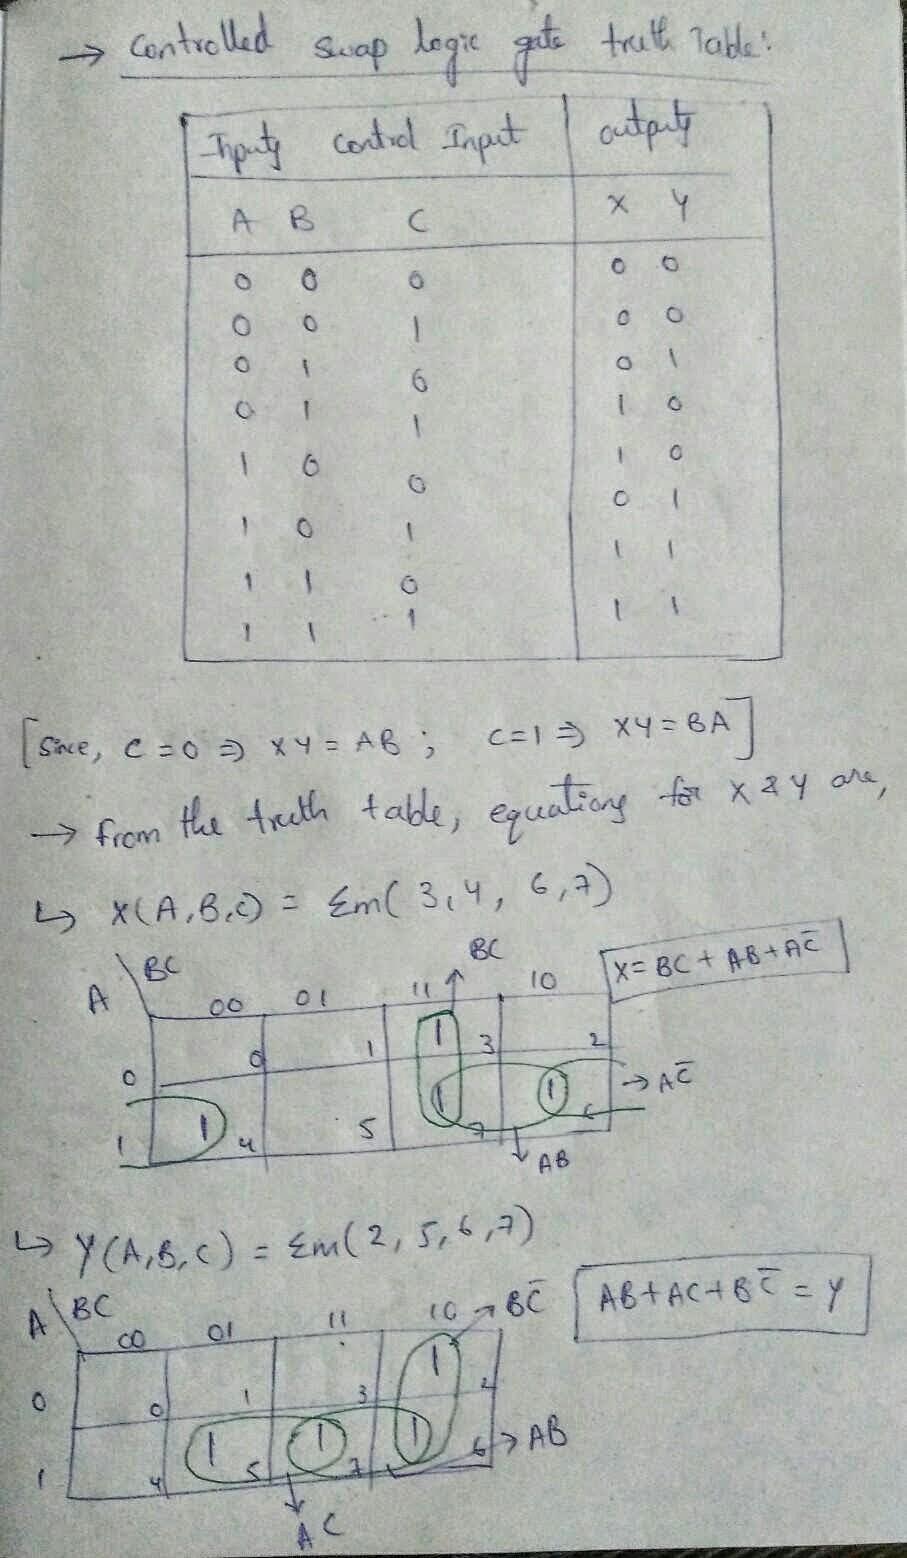 → Controlled swap logic gate truth Table:
Inputs Control Input outputs
A B C X Y
0 0 0 0 0
0 0 1 0 0
0 1 0 0 1
0 1 1 1 0
1 0 0 1 0
1 0 1 0 1
1 1 0 1 1
1 1 1 1 1
[Since, C=0 ⇒ XY = AB ; C=1 ⇒ XY = BA]
→ from the truth table, equations for X & Y are,
↳ X(A,B,C) = Σm(3,4, 6,7)
BC
X = BC + AB + AC̅
A \ BC
00 01 11 10
0 0 1 1 3 2
1 1 4 5 1 7 1 6 → AC̅
AB
↳ Y(A,B,C) = Σm(2,5,6,7)
AB + AC + BC̅ = Y
A \ BC
00 01 11 10 → BC̅
0 0 1 3 1 2
1 4 1 5 1 7 1 6 → AB
AC